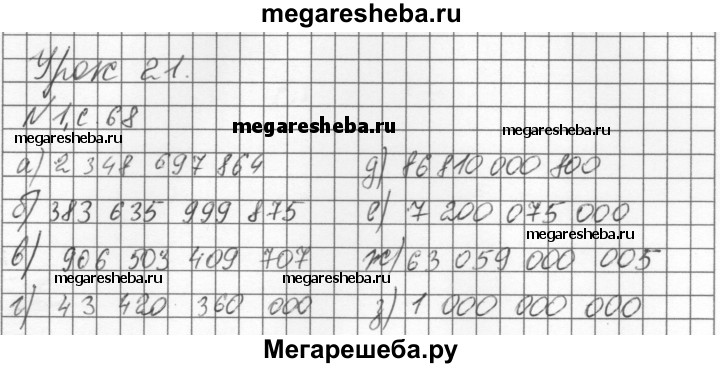 megaresheba.ru
Урок 21.
№1, с. 68
megaresheba.ru
megaresheba.ru
megaresheba.ru
а) 2 348 697 864
д) 86 810 000 800
б) 383 635 999 875
е) 7 200 075 000
megaresheba.ru
в) 906 503 409 707
ж) 63 059 000 005
megaresheba.ru
megaresheba.ru
г) 43 420 360 000
з) 1 000 000 000
Мегарешеба.ру